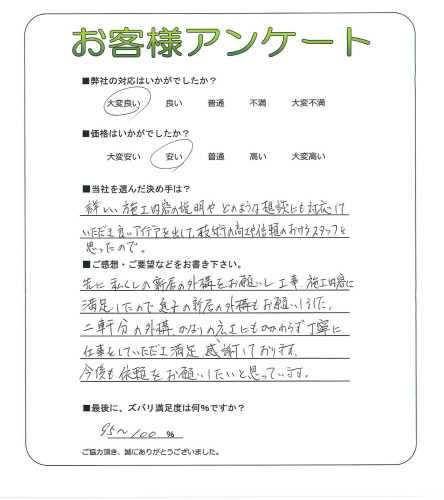 お客様アンケート
■弊社の対応はいかがでしたか?
大変良い 良い 普通 不満 大変不満
■価格はいかがでしたか?
大変安い 安い 普通 高い 大変高い
■当社を選んだ決め手は?
詳しい施工内容の説明やどのような想談にも対応して
いただき良いアイデアを出して、技術の高さや信頼のおけるスタッフと
思ったので。
■ご感想・ご要望などをお書き下さい。
先に私くしの新居の外構をお願いし工事、施工内容に
満足したので息子の新居の外構もお願いしました。
二軒分の外構かなりの広さにもかかわらず丁寧に
仕事をしていただき満足、感謝しております。
今後も依頼をお願いしたいと思っています。
■最後に、ズバリ満足度は何%ですか?
95〜100 %
ご協力頂き、誠にありがとうございました。